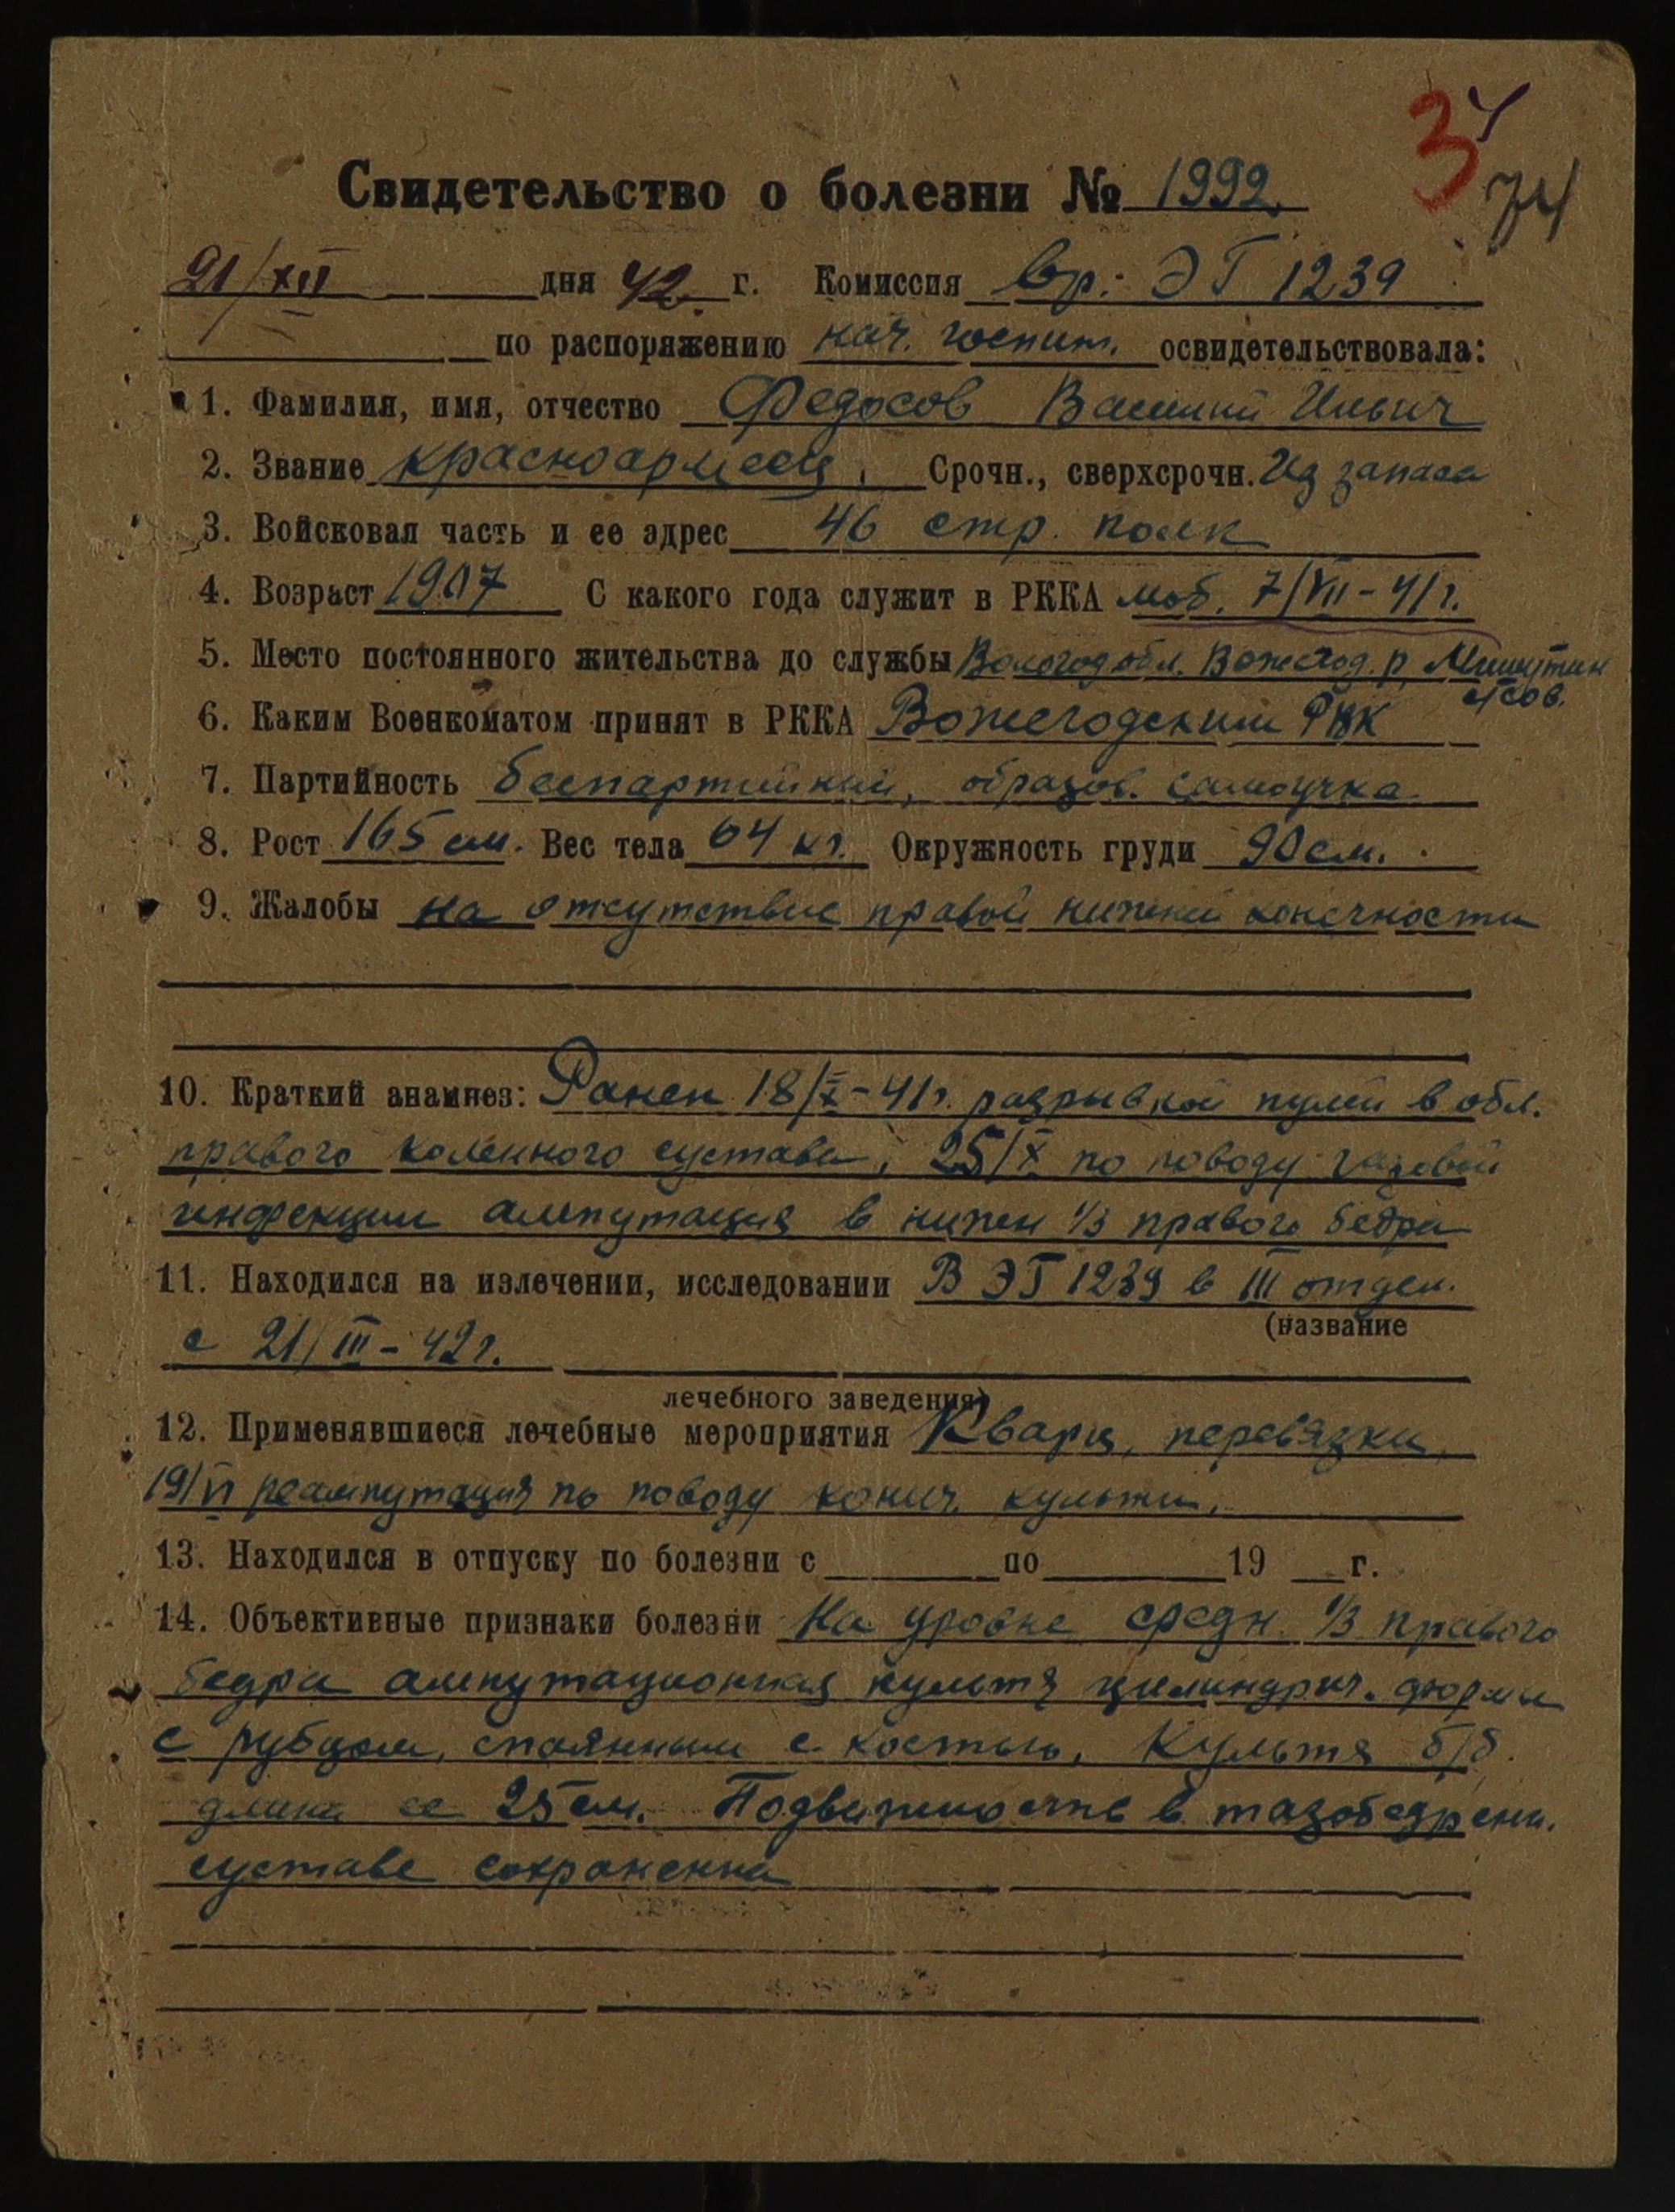 34
74
Свидетельство о болезни № 1992.
21/XII дня 42. г. Комиссия вр: ЭГ 1239
по распоряжению нач. госпит. освидетельствовала:
1. Фамилия, имя, отчество Федосов Василий Ильич
2. Звание красноармеец, Срочн., сверхсрочн. Из запаса
3. Войсковая часть и ее адрес 46 стр. полк
4. Возраст 1907 С какого года служит в РККА моб. 7/VII-41г.
5. Место постоянного жительства до службы Вологод обл. Вожегод. р. Мишутин
с/сов.
6. Каким Военкоматом принят в РККА Вожегодским РВК
7. Партийность беспартийный, образов. самоучка
8. Рост 165 см. Вес тела 64 кг. Окружность груди 90 см.
9. Жалобы на отсутствие правой нижней конечности
10. Краткий анамнез: Ранен 18/X-41г. разрывной пулей в обл.
правого коленного сустава, 25/X по поводу газовой
инфекции ампутация в нижней 1/3 правого бедра
11. Находился на излечении, исследовании В ЭГ 1239 в III отдел.
(название
с 21/III-42г.
лечебного заведения)
12. Применявшиеся лечебные мероприятия Кварц, перевязки,
19/VI реампутация по поводу конич. культи.
13. Находился в отпуску по болезни с по 19 г.
14. Объективные признаки болезни На уровне средн. 1/3 правого
бедра ампутационная культя цилиндрич. формы
с рубцом, спаянным с костью. Культя б/б.
длина ее 25 см. Подвижность в тазобедренн.
суставе сохранена